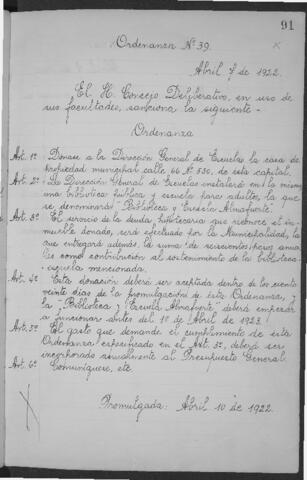 91
Ordenanza Nº 39.
Abril 7 de 1922.
El H. Concejo Deliberativo, en uso de
sus facultades, sanciona la siguiente -
Ordenanza
Art. 1º Donase a la Dirección General de Escuelas la casa de
propiedad municipal calle 66 Nº 530, de esta capital.
Art. 2º La Dirección General de Escuelas instalará en la misma
una biblioteca pública y escuela para adultos, la que
se denominará "Biblioteca y Escuela Almafuerte".
Art. 3º El servicio de la deuda hipotecaria que reconoce el in-
mueble donado, será efectuado por la Municipalidad, la
que entregará además, la suma de seiscientos pesos anua-
les como contribución al sostenimiento de la biblioteca-
escuela mencionada.
Art. 4º Esta donación deberá ser aceptada dentro de los ciento
veinte dias de la promulgación de ésta Ordenanza, y
la "Biblioteca y Escuela Almafuerte" deberá empezar
a funcionar antes del 1º de Abril de 1923.
Art. 5º El gasto que demande el cumplimiento de ésta
Ordenanza especificado en el Art. 3º, deberá ser
incorporado anualmente al Presupuesto General.
Art. 6º Comuníquese, etc.
Promulgada: Abril 10 de 1922.